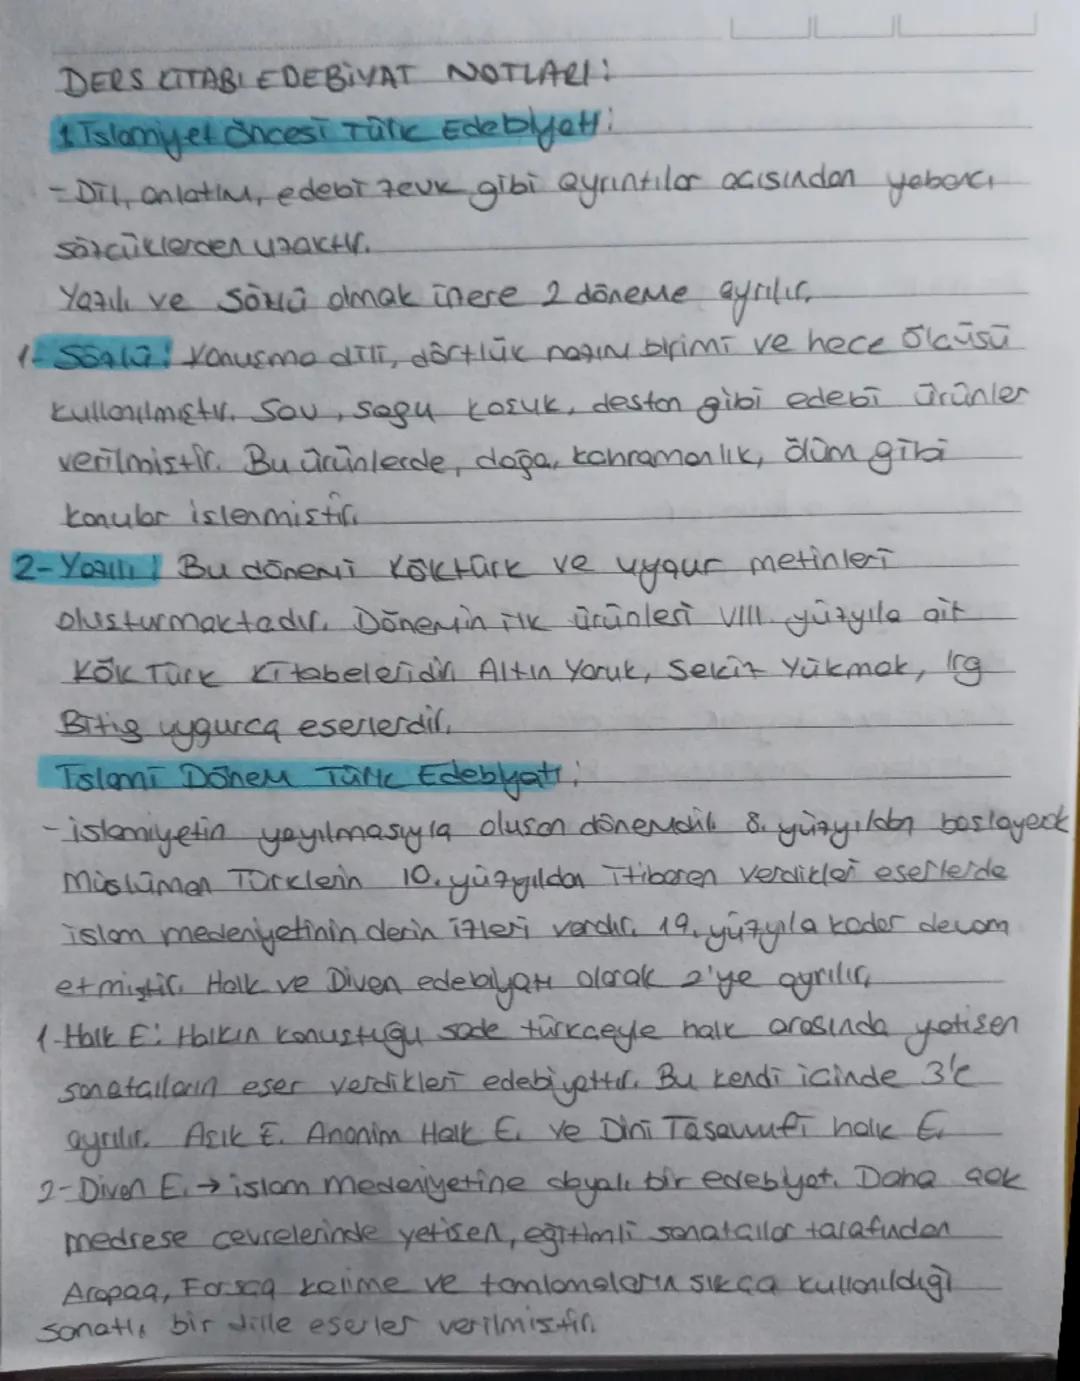 DERS KİTABI EDEBİYAT NOTLARI:
1 İslamiyet Öncesi Türk Edebiyatı:
- Dil, anlatım, edebi zevk gibi ayrıntılar açısından yabancı
sözcüklerden uzaktır.
Yazılı ve Sözlü olmak üzere 2 döneme ayrılır.
1- Sözlü: Konuşma dili, dörtlük nazım birimi ve hece ölçüsü
kullanılmıştır. Sav, sagu koşuk, destan gibi edebi ürünler
verilmiştir. Bu ürünlerde, doğa, kahramanlık, ölüm gibi
konular işlenmiştir.
2- Yazılı: Bu dönemi Köktürk ve uygur metinleri
oluşturmaktadır. Dönemin ilk ürünleri VIII. yüzyıla ait
Kök Türk Kitabeleridir. Altın Yaruk, Sekiz Yükmek, Irg
Bitig uygurca eserlerdir.
İslami Dönem Türk Edebiyatı:
- islamiyetin yayılmasıyla oluşan dönemdir. 8. yüzyıldan başlayarak
Müslüman Türklerin 10. yüzyıldan itibaren verdikleri eserlerde
islam medeniyetinin derin izleri vardır. 19. yüzyıla kadar devam
etmiştir. Halk ve Divan edebiyatı olarak 2'ye ayrılır.
1-Halk E: Halkın konuştuğu sade türkçeyle halk arasında yetişen
sanatçıların eser verdikleri edebiyattır. Bu kendi içinde 3'e
ayrılır. Aşık E. Anonim Halk E. ve Dini Tasavvufi halk E.
2-Divan E. → islam medeniyetine dayalı bir edebiyat. Daha çok
medrese çevrelerinde yetişen, eğitimli sanatçılar tarafından
Arapça, Farsça kelime ve tamlamaların sıkça kullanıldığı
sanatlı bir dille eserler verilmiştir.